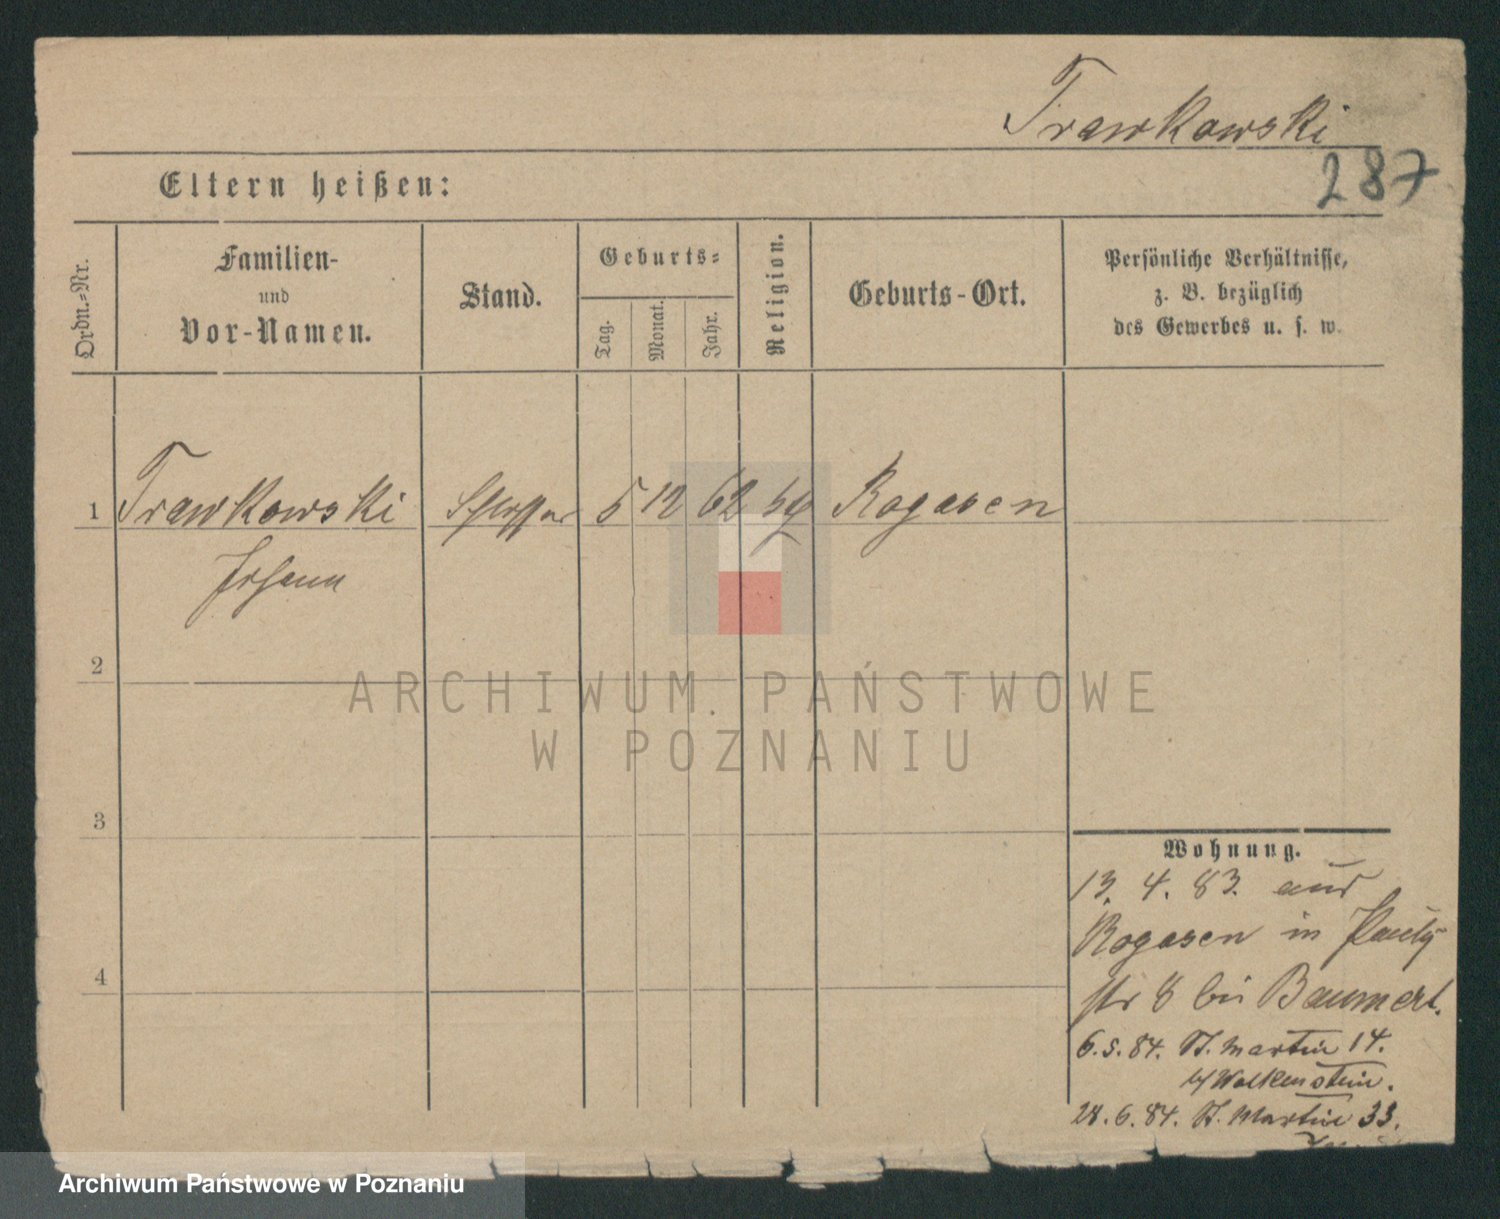 Trawkowski
287
Eltern heißen:
Ordn.-Nr.
Familien-
und
Vor-Namen.
Stand.
Geburts-
Tag.
Monat.
Jahr.
Religion.
Geburts-Ort.
Persönliche Verhältnisse,
z. B. bezüglich
des Gewerbes u. s. w.
1 Trawkowski Schlosser 5 12 62 Rogasen
Johann
2
3
4
Wohnung.
13. 4. 83. aus
Rogasen in Pauly
str 8 bei Baumert.
6. 5. 84. St. Martin 14.
b/ Wolkenstein.
28. 6. 84. St. Martin 33.
ARCHIWUM PAŃSTWOWE
W POZNANIU
Archiwum Państwowe w Poznaniu